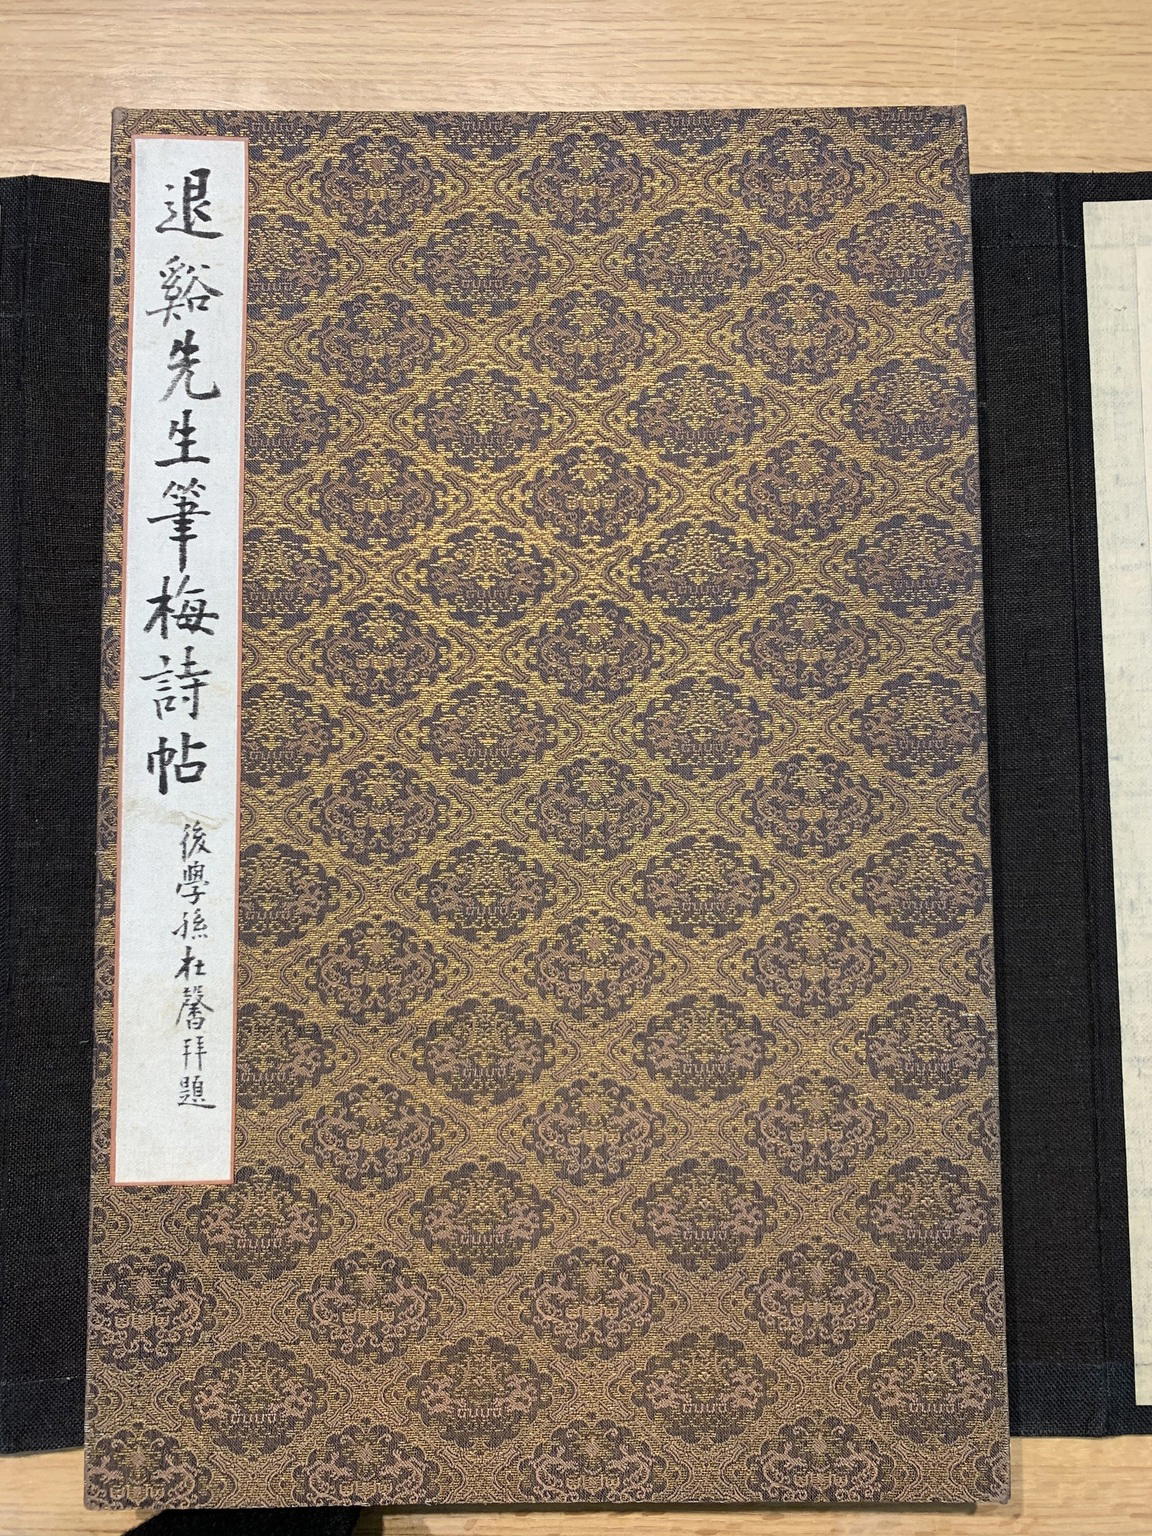 退谿先生筆梅詩帖
後學孫杜馨拜題